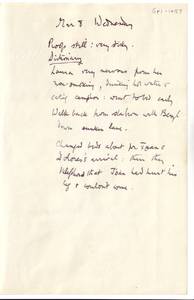 Mar 8 Wednesday
Roofs still: very sticky.
Dictionary
Laura very nervous from her
non-smoking, drinking hot water &
eating camphor: went to bed early
Walk back from station with Beryl
down sunken lane.
Changed beds about for Joan &
Dolores's arrival: then they
telephoned that Joan had hurt his
leg & couldn't come.